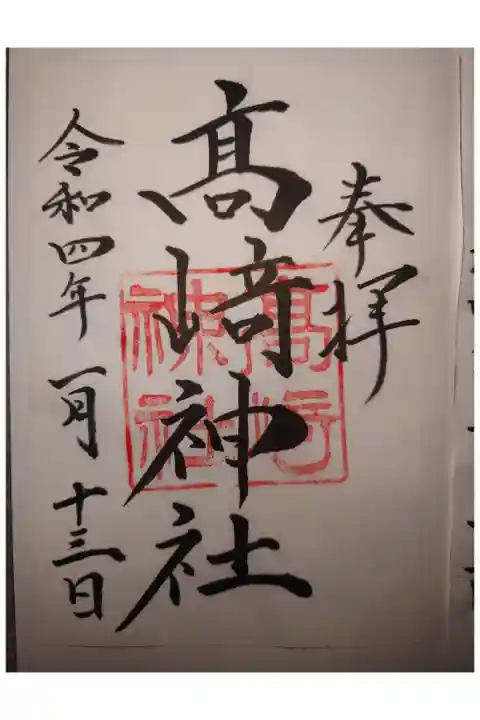 奉拝
髙﨑神社
髙﨑
神社
令和四年一月十三日